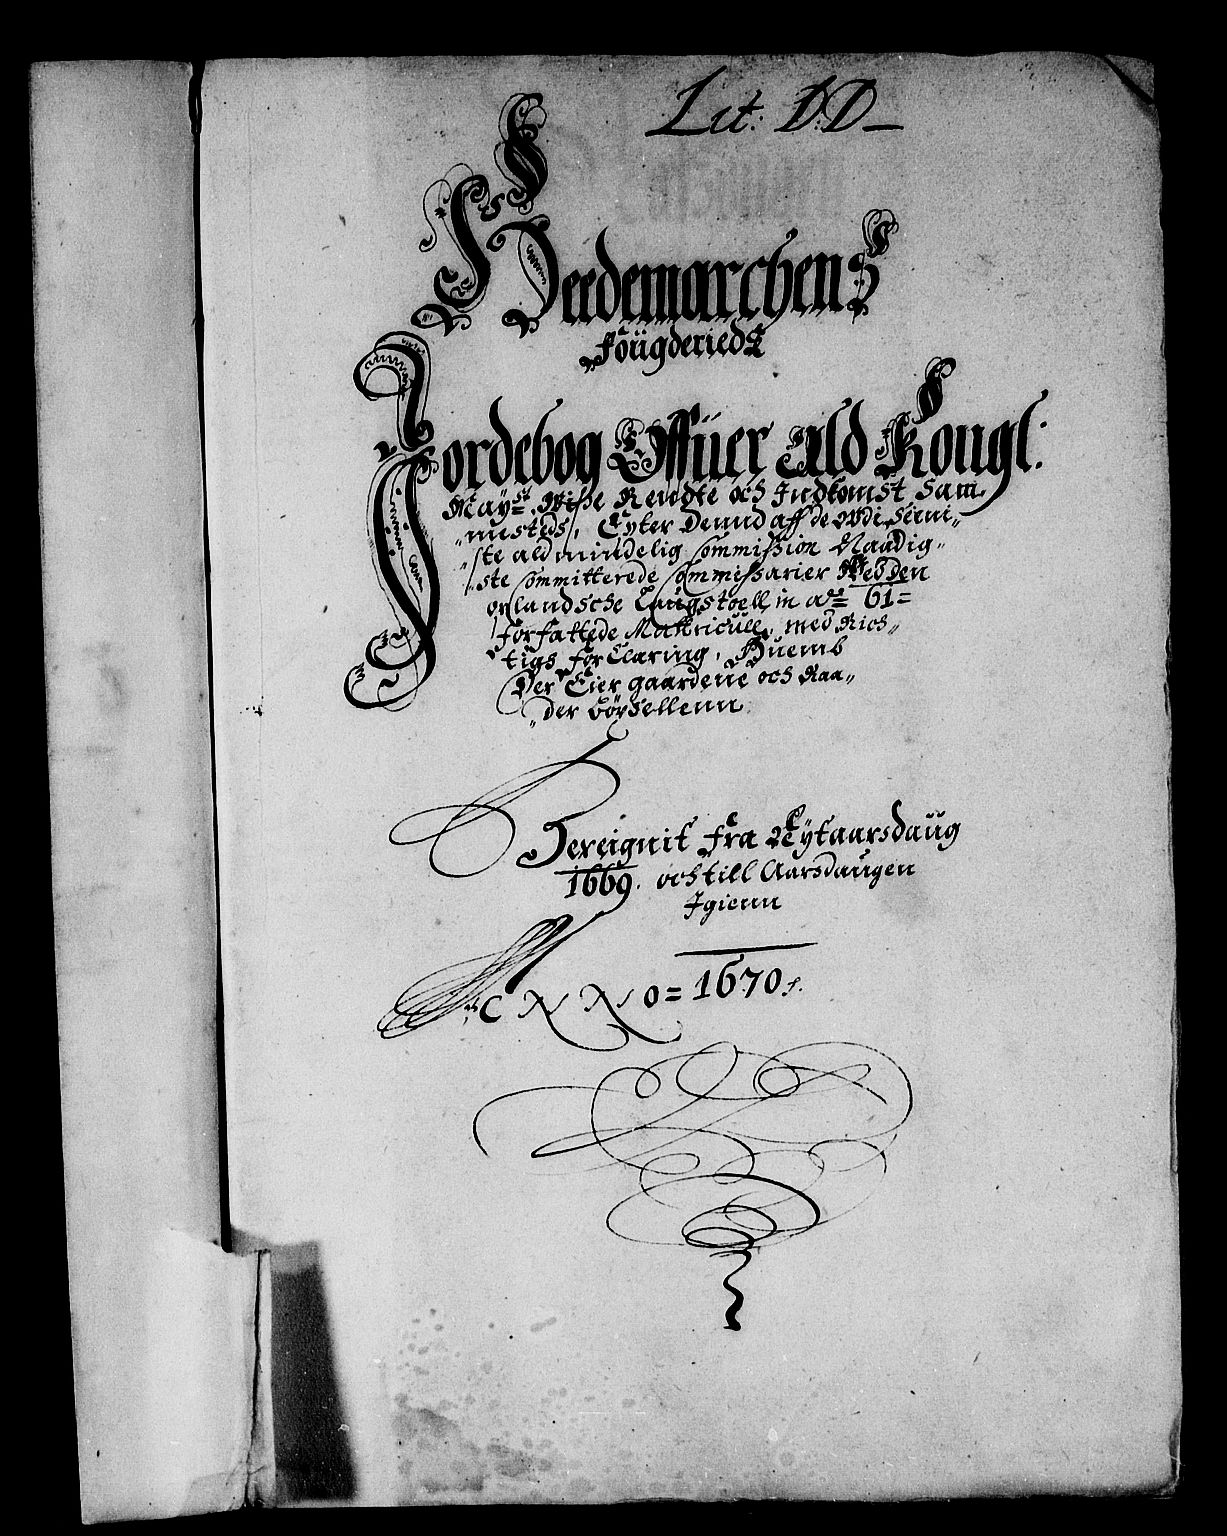 Lit: D:D
Heedemarchens
Fougderieds
Jordebog Offuer Ald Kongl:
Mayts. Wisse Rendte och Indkomst Sam„
„mesteds, Epter Dennd aff de Udi Seeni„
„ste ald mindelig Commission Naadig„
„ste Committerede Commessarier Ved den
Norlandsche Laugstoell in ao= 61=
forfattede Matricull, med Rich„
„tigs forClaring, Huemb
Der Eier gaardene och Raa„
„der böxellenn
Bereignit fra Nytaarsdaug
1669. och till Aarsdaugen
Igienn
ANNO= 1670.